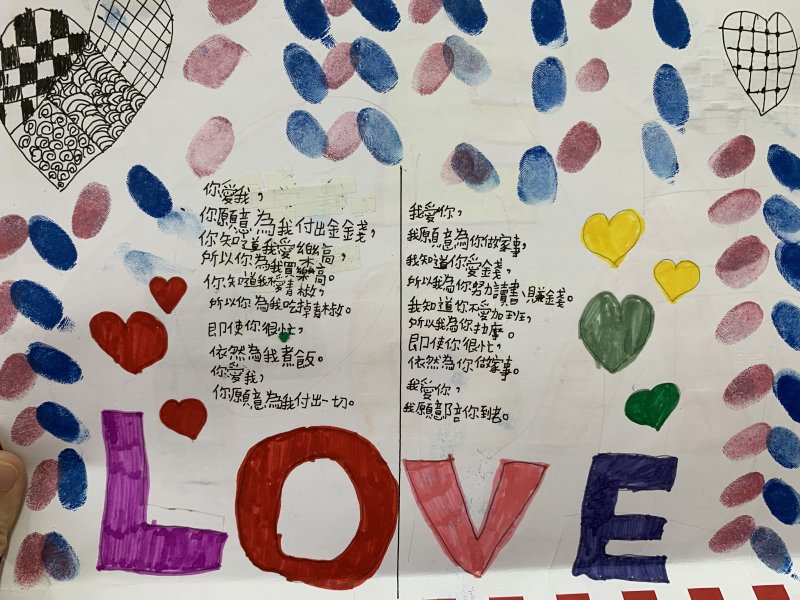 你愛我，
你願意為我付出金錢，
你知道我愛樂高，
所以你為我買樂高。
你知道我愛青椒，
所以你為我吃掉青椒。
即使你很忙，
依然為我煮飯。
你愛我，
你願意為我付出一切。
我愛你，
我願意為你做家事，
我知道你愛金錢，
所以我為你努力讀書、賺金錢。
我知道你不愛加班，
所以我為你按摩。
即使你很忙，
依然為你做家事。
我愛你，
我願意陪你到老。
LOVE